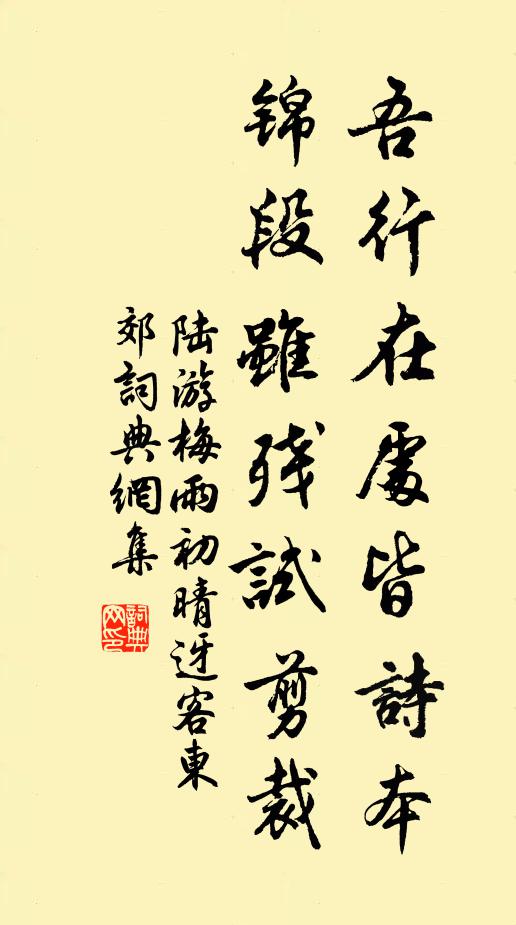 吾行在處皆詩本
錦段雖殘試剪裁
陆游梅雨初晴迓客東
郊詞典網集
詞典
网印